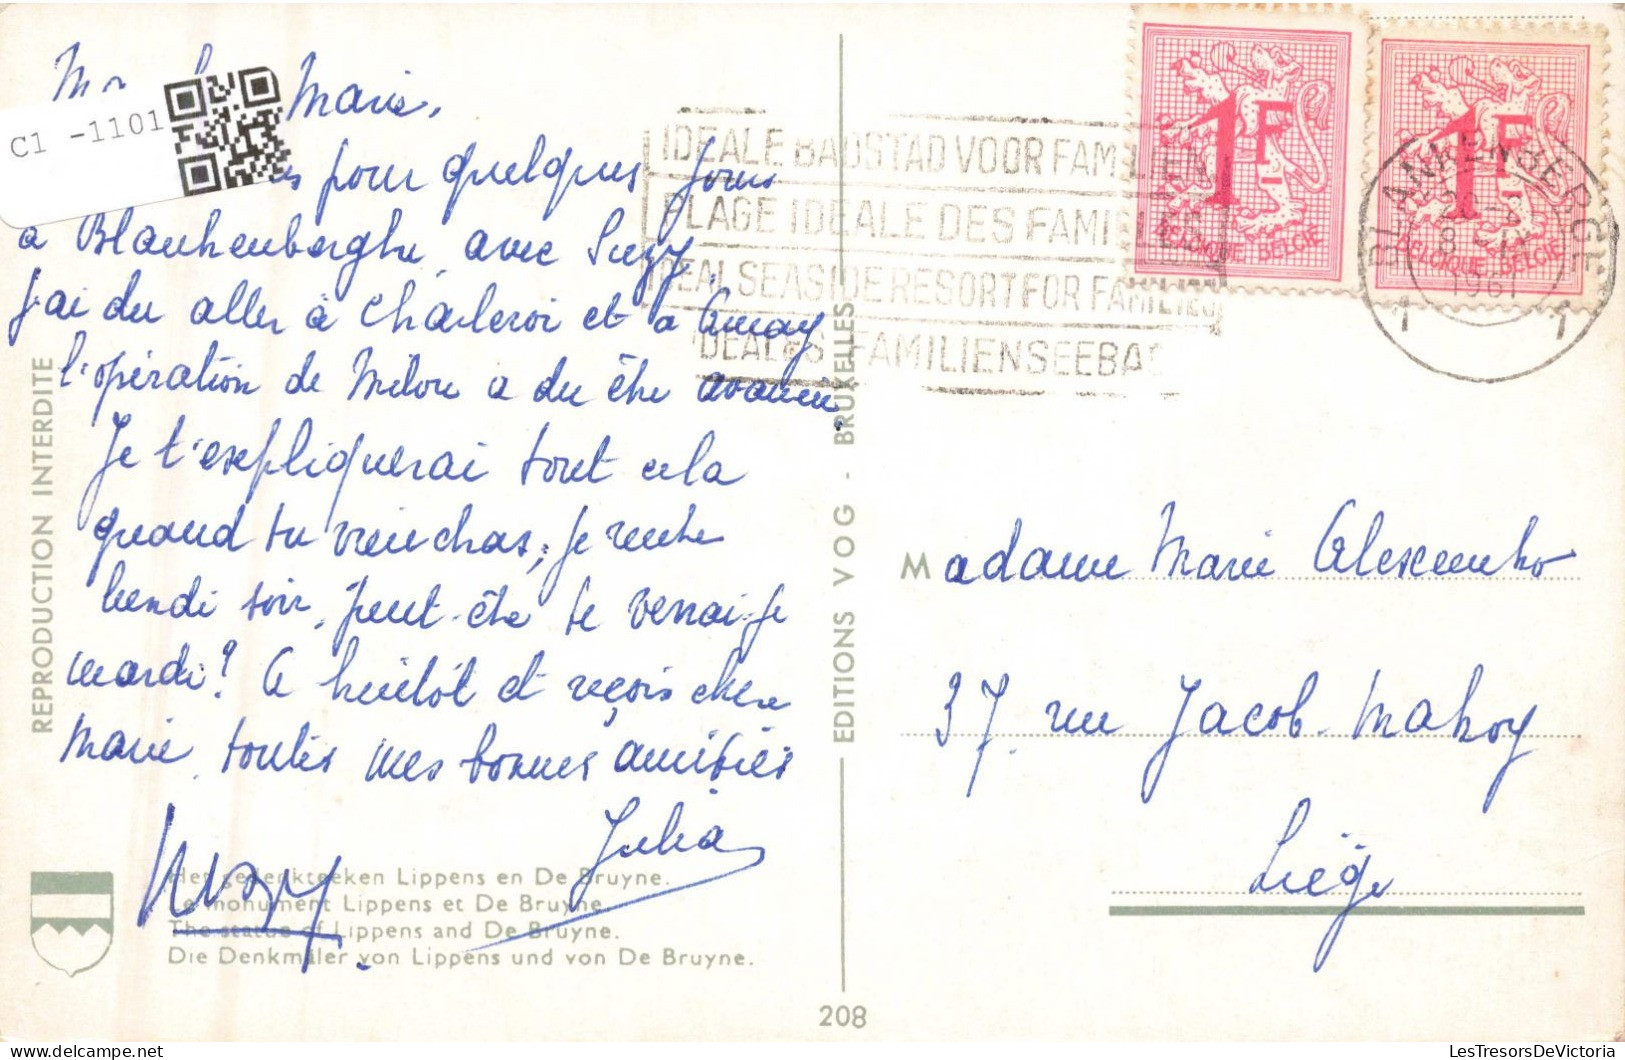 C1 -1101
Marie,
pour quelques jours
a Blankenberghe avec Suzy,
j'ai du aller à Charleroi et a Amay
l'opération de Milou a du être
Je t'expliquerai tout cela
quand tu viendras, je rentre
lundi soir, peut-être te verrai-je
mardi? A bientôt et reçois chère
Marie, toutes mes bonnes amitiés
Julia
Suzy
Het gedenkteeken Lippens en De Bruyne.
Le monument Lippens et De Bruyne.
The statue of Lippens and De Bruyne.
Die Denkmäler von Lippens und von De Bruyne.
REPRODUCTION INTERDITE
EDITIONS VOG - BRUXELLES
208
IDEALE BADSTAD VOOR FAMILIEN
PLAGE IDEALE DES FAMILLES
IDEAL SEASIDE RESORT FOR FAMILIES
IDEALES FAMILIENSEEBAD
1F
BELGIQUE-BELGIË
1F
BELGIQUE-BELGIË
BLANKENBERGE
1961
1 1
Madame Marie
37, rue Jacob-Makoy
Liège
LesTresorsDeVictoria